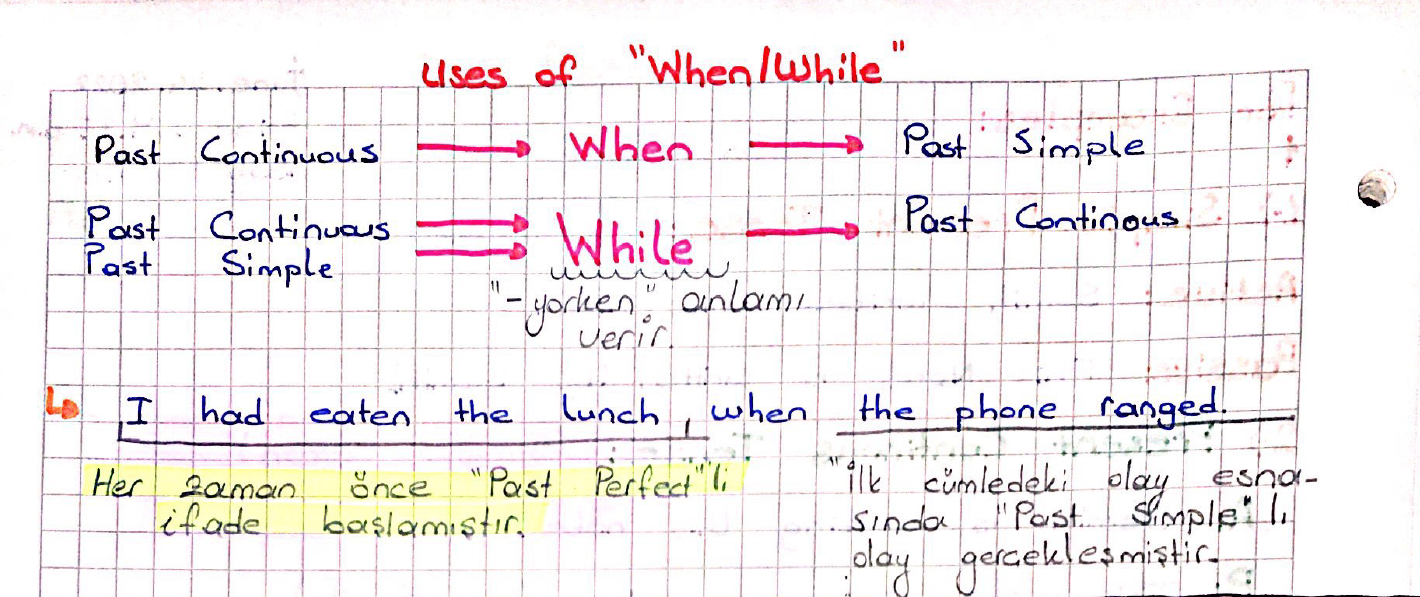 Uses of "When/While"
Past Continuous → When → Past Simple
Past Continuous → While → Past Continous
Past Simple →
"-yorken" anlamı
verir.
I had eaten the lunch, when the phone ranged.
Her zaman önce "Past Perfect"li "ilk cümledeki olay esna-
ifade başlamıştır. sında "Past Simple"lı
olay gerçekleşmiştir.